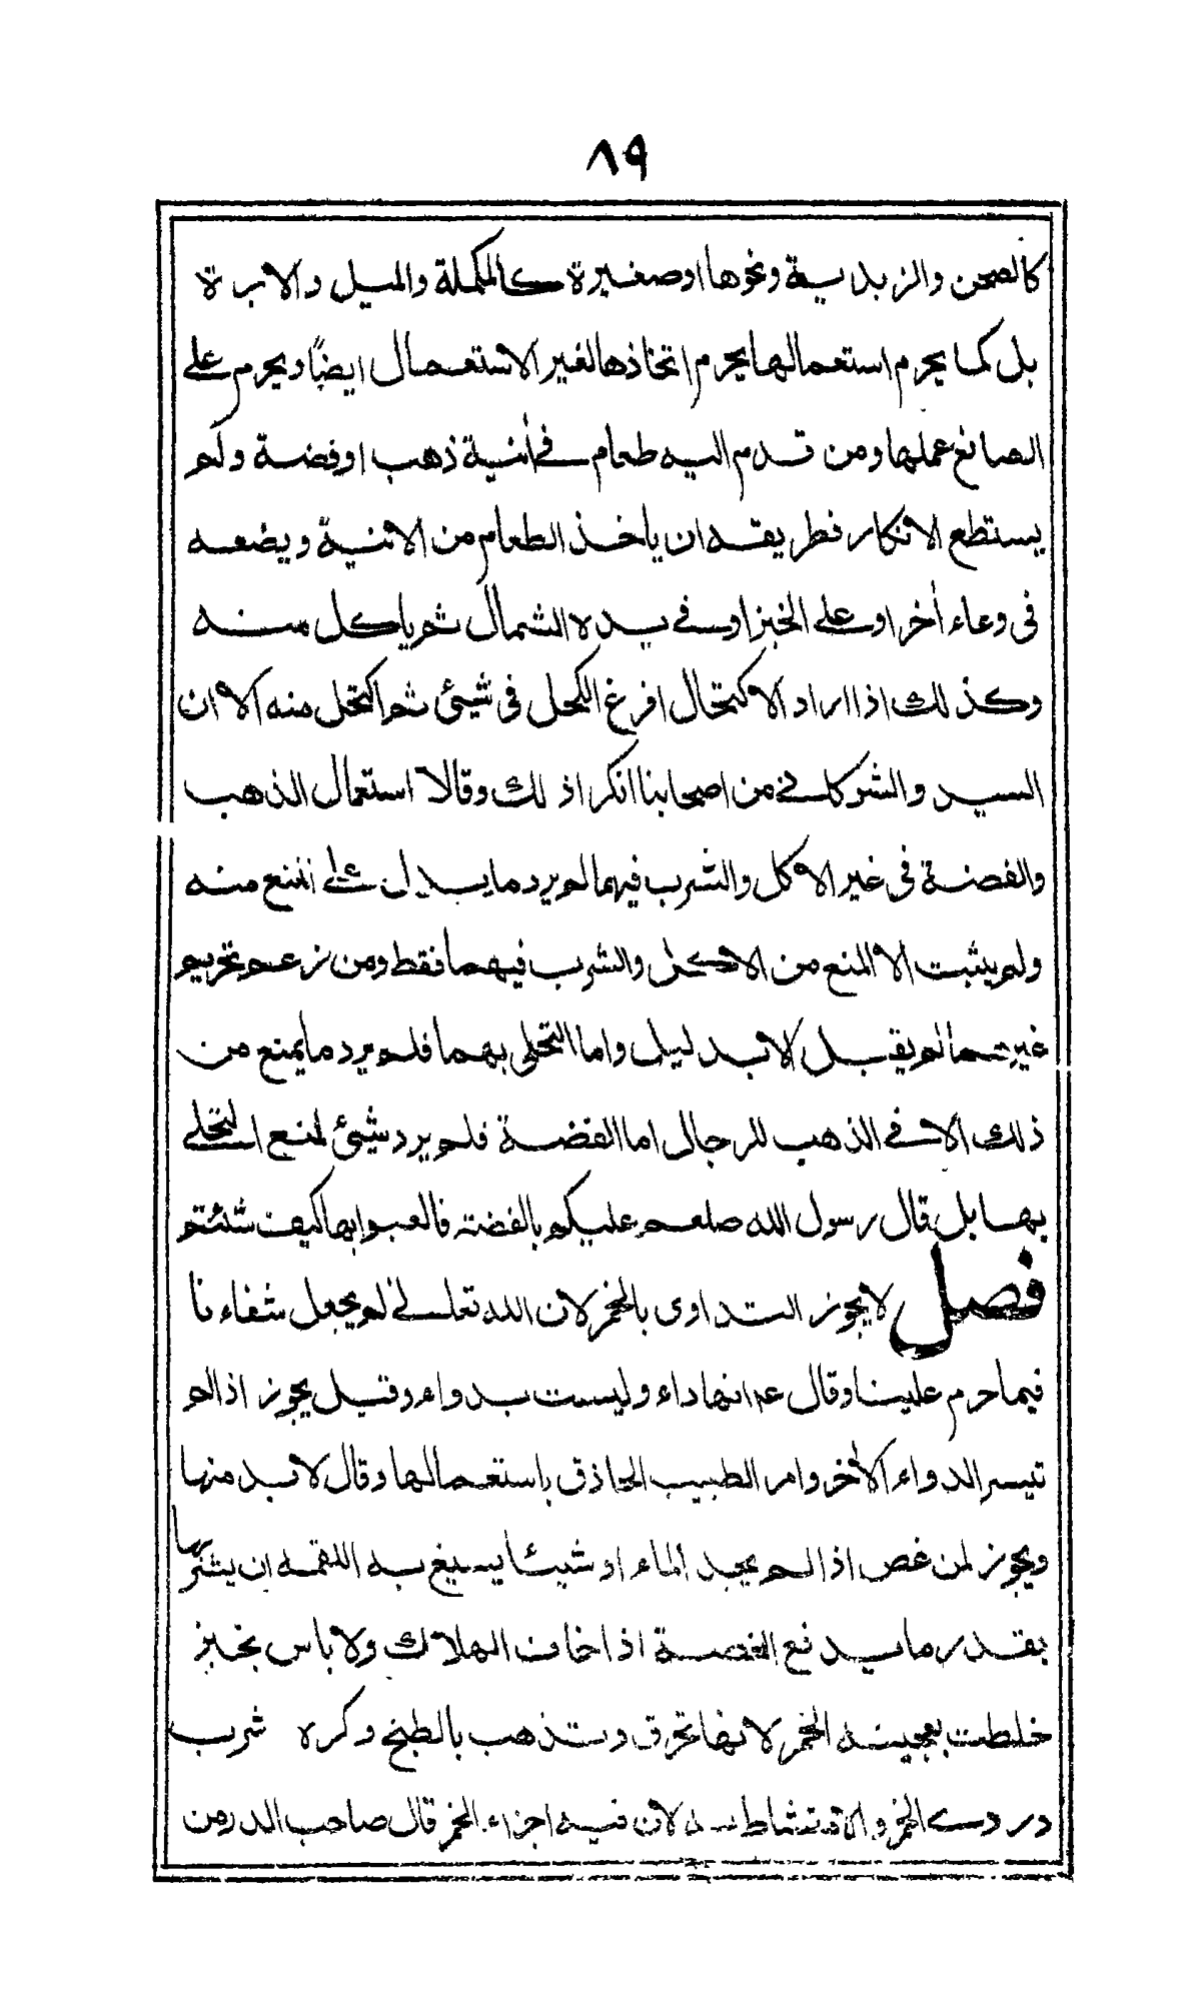 ٨٩
كالصحن والزبدية ونحوها او صغيرة كالمكحلة والميل والابرة
بل كما يحرم استعمالها يحرم اتخاذها لغير الاستعمال ايضًا ويحرم على
الصائغ عملها ومن قدم اليه طعام في أنية ذهب او فضة ولم
يستطع الانكار فطريقه ان ياخذ الطعام من الأنية ويضعه
في وعاء أخر او على الخبز او في يده الشمال ثم ياكل منه
وكذلك اذا اراد الاكتحال افرغ الكحل في شيئ ثم اكتحل منه الا ان
السيد والشوكاني من اصحابنا انكرا ذلك وقالا استعمال الذهب
والفضة في غير الاكل والشرب فيهما لم يرد ما يدل على المنع منه
ولم يثبت الا المنع من الاكل والشرب فيهما فقط ومن زعم تحريم
غيرهما لم يقبل الا بدليل واما التحلي بهما فلم يرد ما يمنع من
ذلك الا في الذهب للرجال اما الفضة فلم يرد شيئ لمنع التحلي
بها بل قال رسول الله صلعم عليكم بالفضة فالعبوا بها كيف شئتم
فصل لا يجوز التداوى بالخمر لان الله تعالى لم يجعل شفاءنا
فيما حرم علينا وقال عم انها داء وليست بدواء وقيل يجوز اذا لم
تيسر الدواء الأخر وامر الطبيب الحاذق باستعمالها وقال لا بد منها
ويجوز لمن غص اذا لم يجد الماء او شيئا يسيغ به اللقمة ان يشربها
بقدر ما يدفع الغصة اذا خاف الهلاك ولا باس بخبز
خلطت بعجينه الخمر لانها تحرق وتذهب بالطبخ وكره شرب
دردي الخمر والامتشاط به لان فيه اجزاء الخمر قال صاحب الدر من